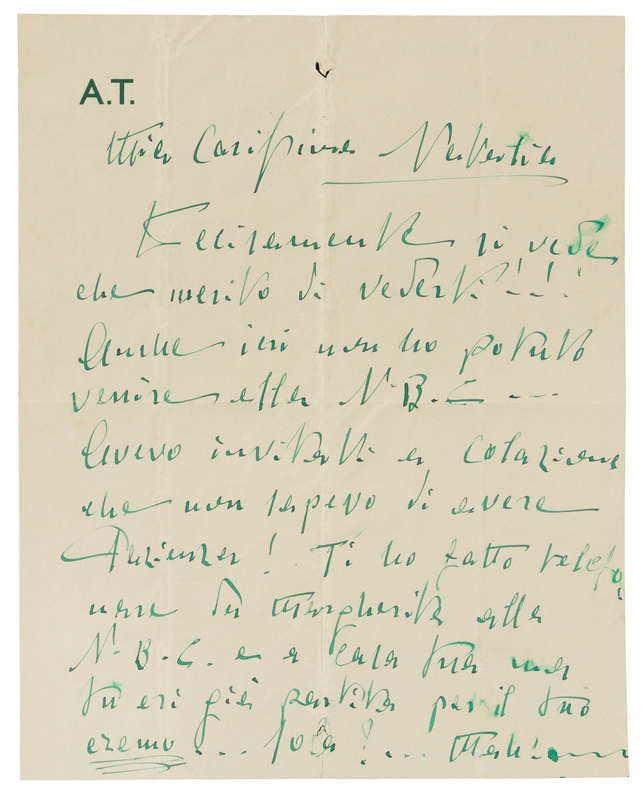 A.T.
Mia Carissima
Decisamente si vede
che merito di vederti!!!
Anche ieri non ho potuto
venire alla N.B.C. ...
Avevo invitati a colazione
che non sapevo di avere
Pazienza! Ti ho fatto telefo-
nare da Margherita alla
N.B.C. e a casa tua ma
tu eri già partita per il tuo
eremo... sola?... Mah!...